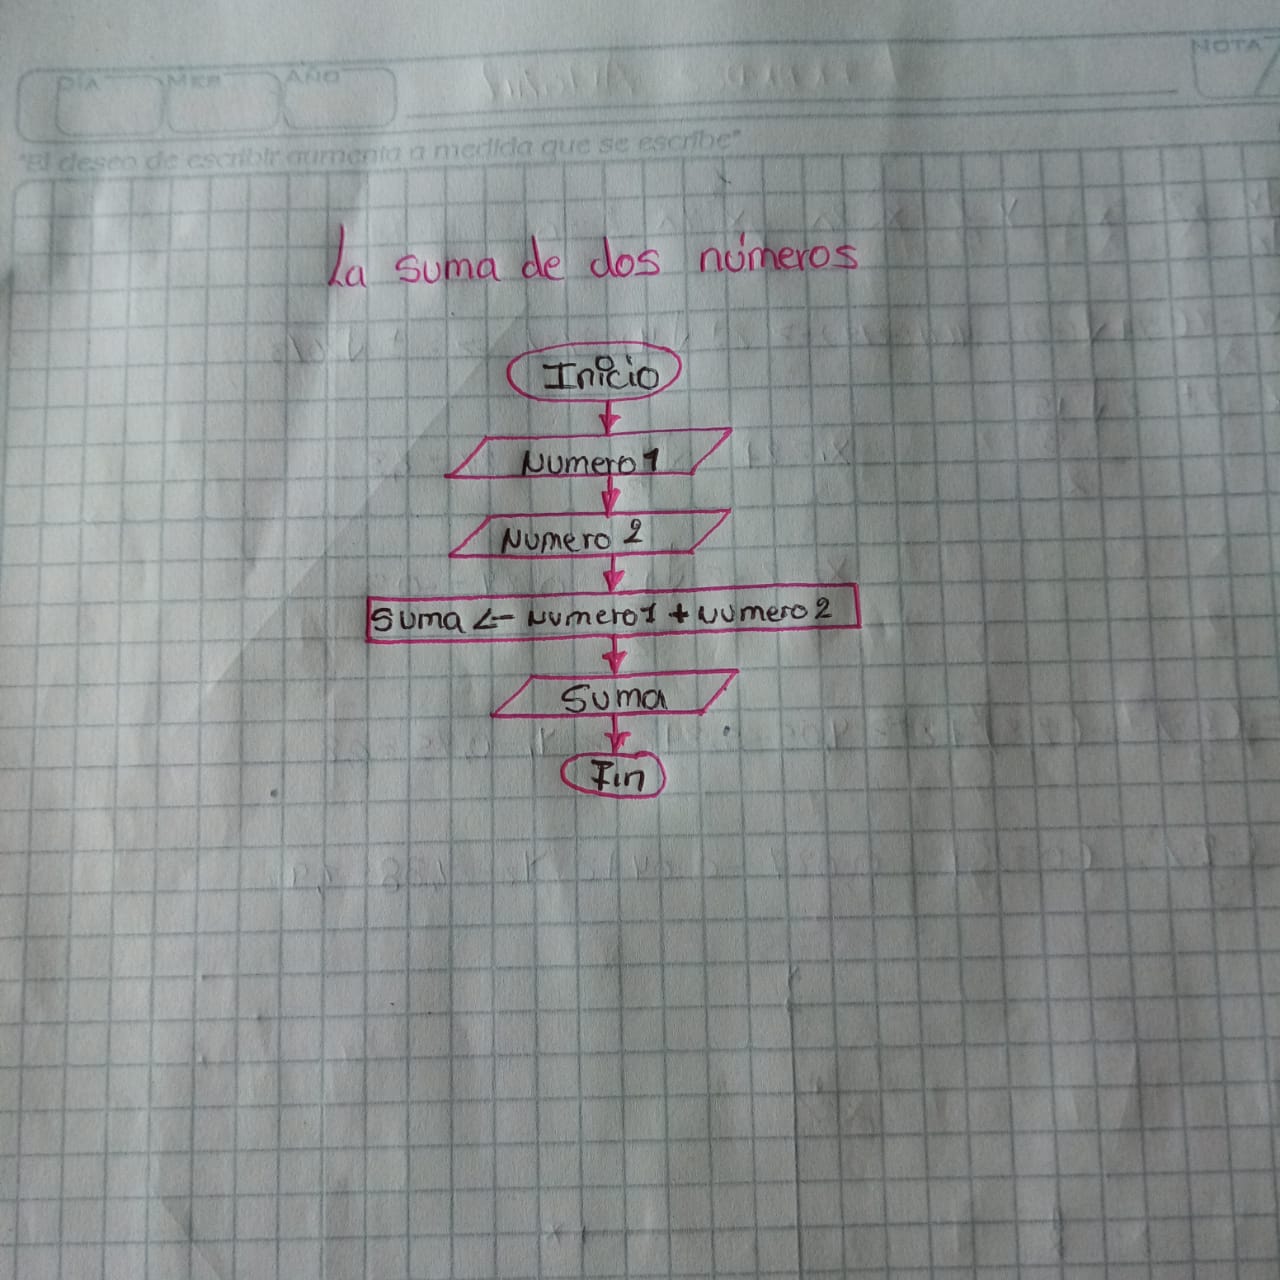 DIA MES AÑO NOTA
"El deseo de escribir aumenta a medida que se escribe"
La suma de dos números
Inicio
Numero 1
Numero 2
Suma <- Numero 1 + Numero 2
Suma
Fin